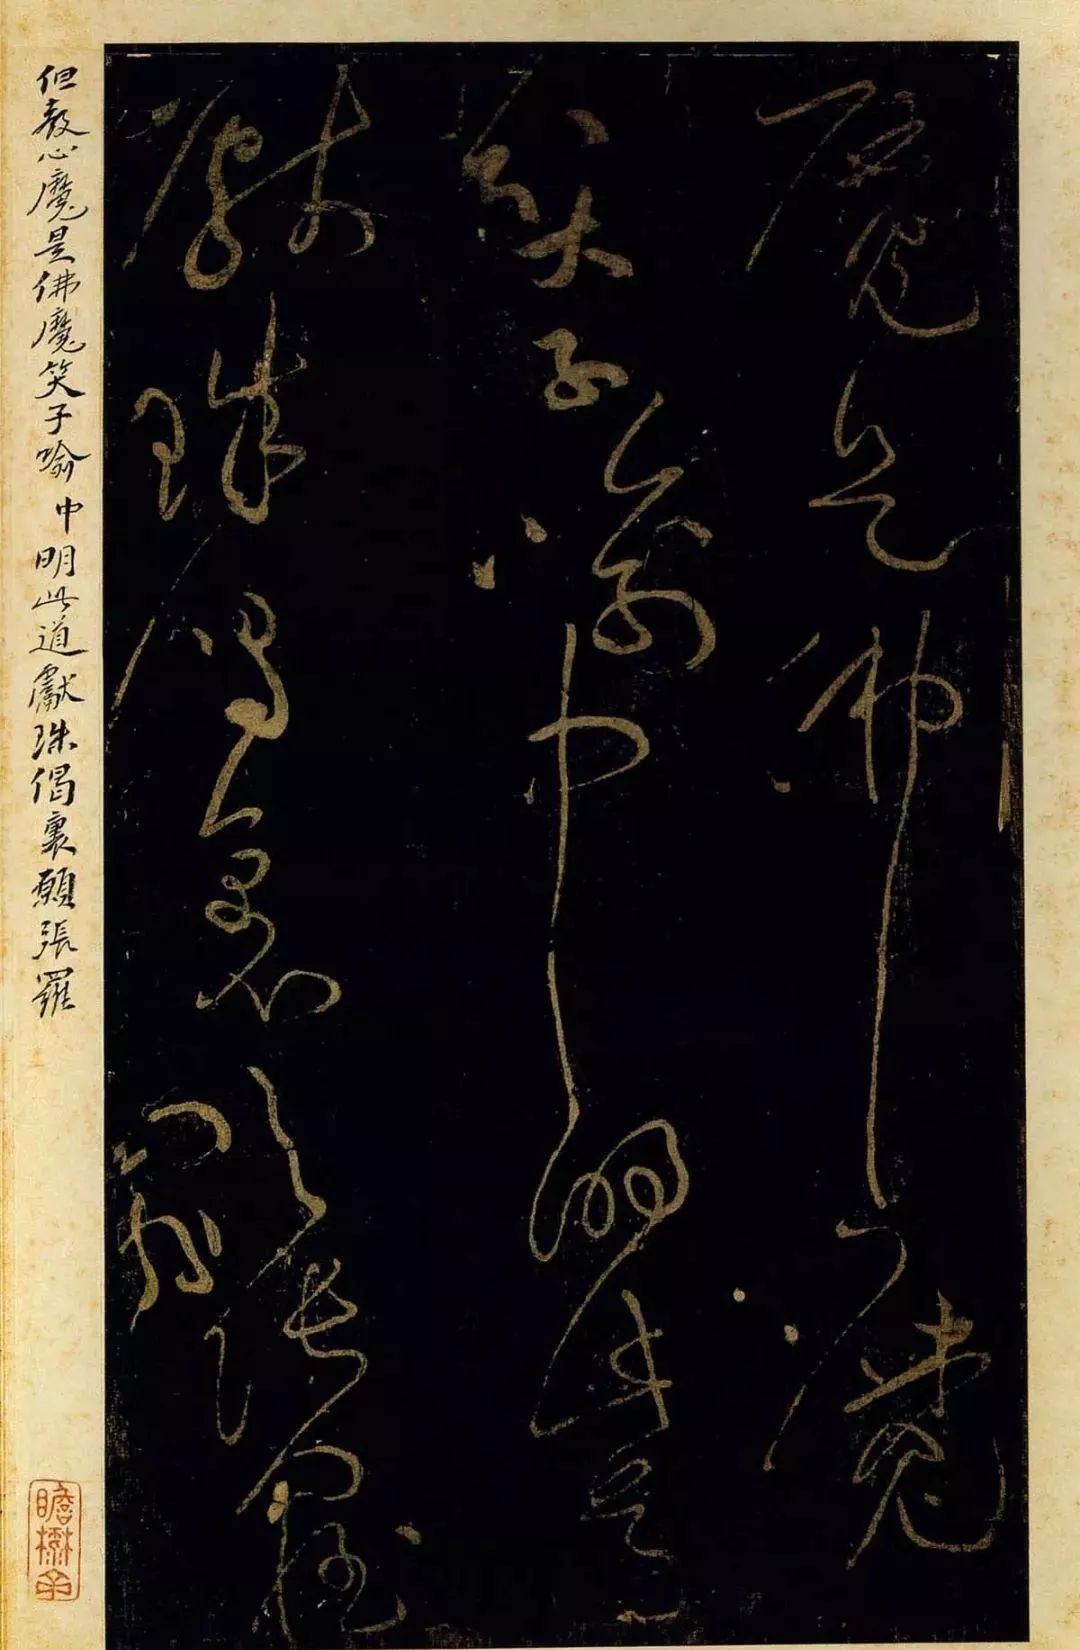 魔是佛魔
笑子喻中明此道
獻珠偈裏願張羅
但教心魔是佛魔笑子喻中明此道獻珠偈裏願張羅